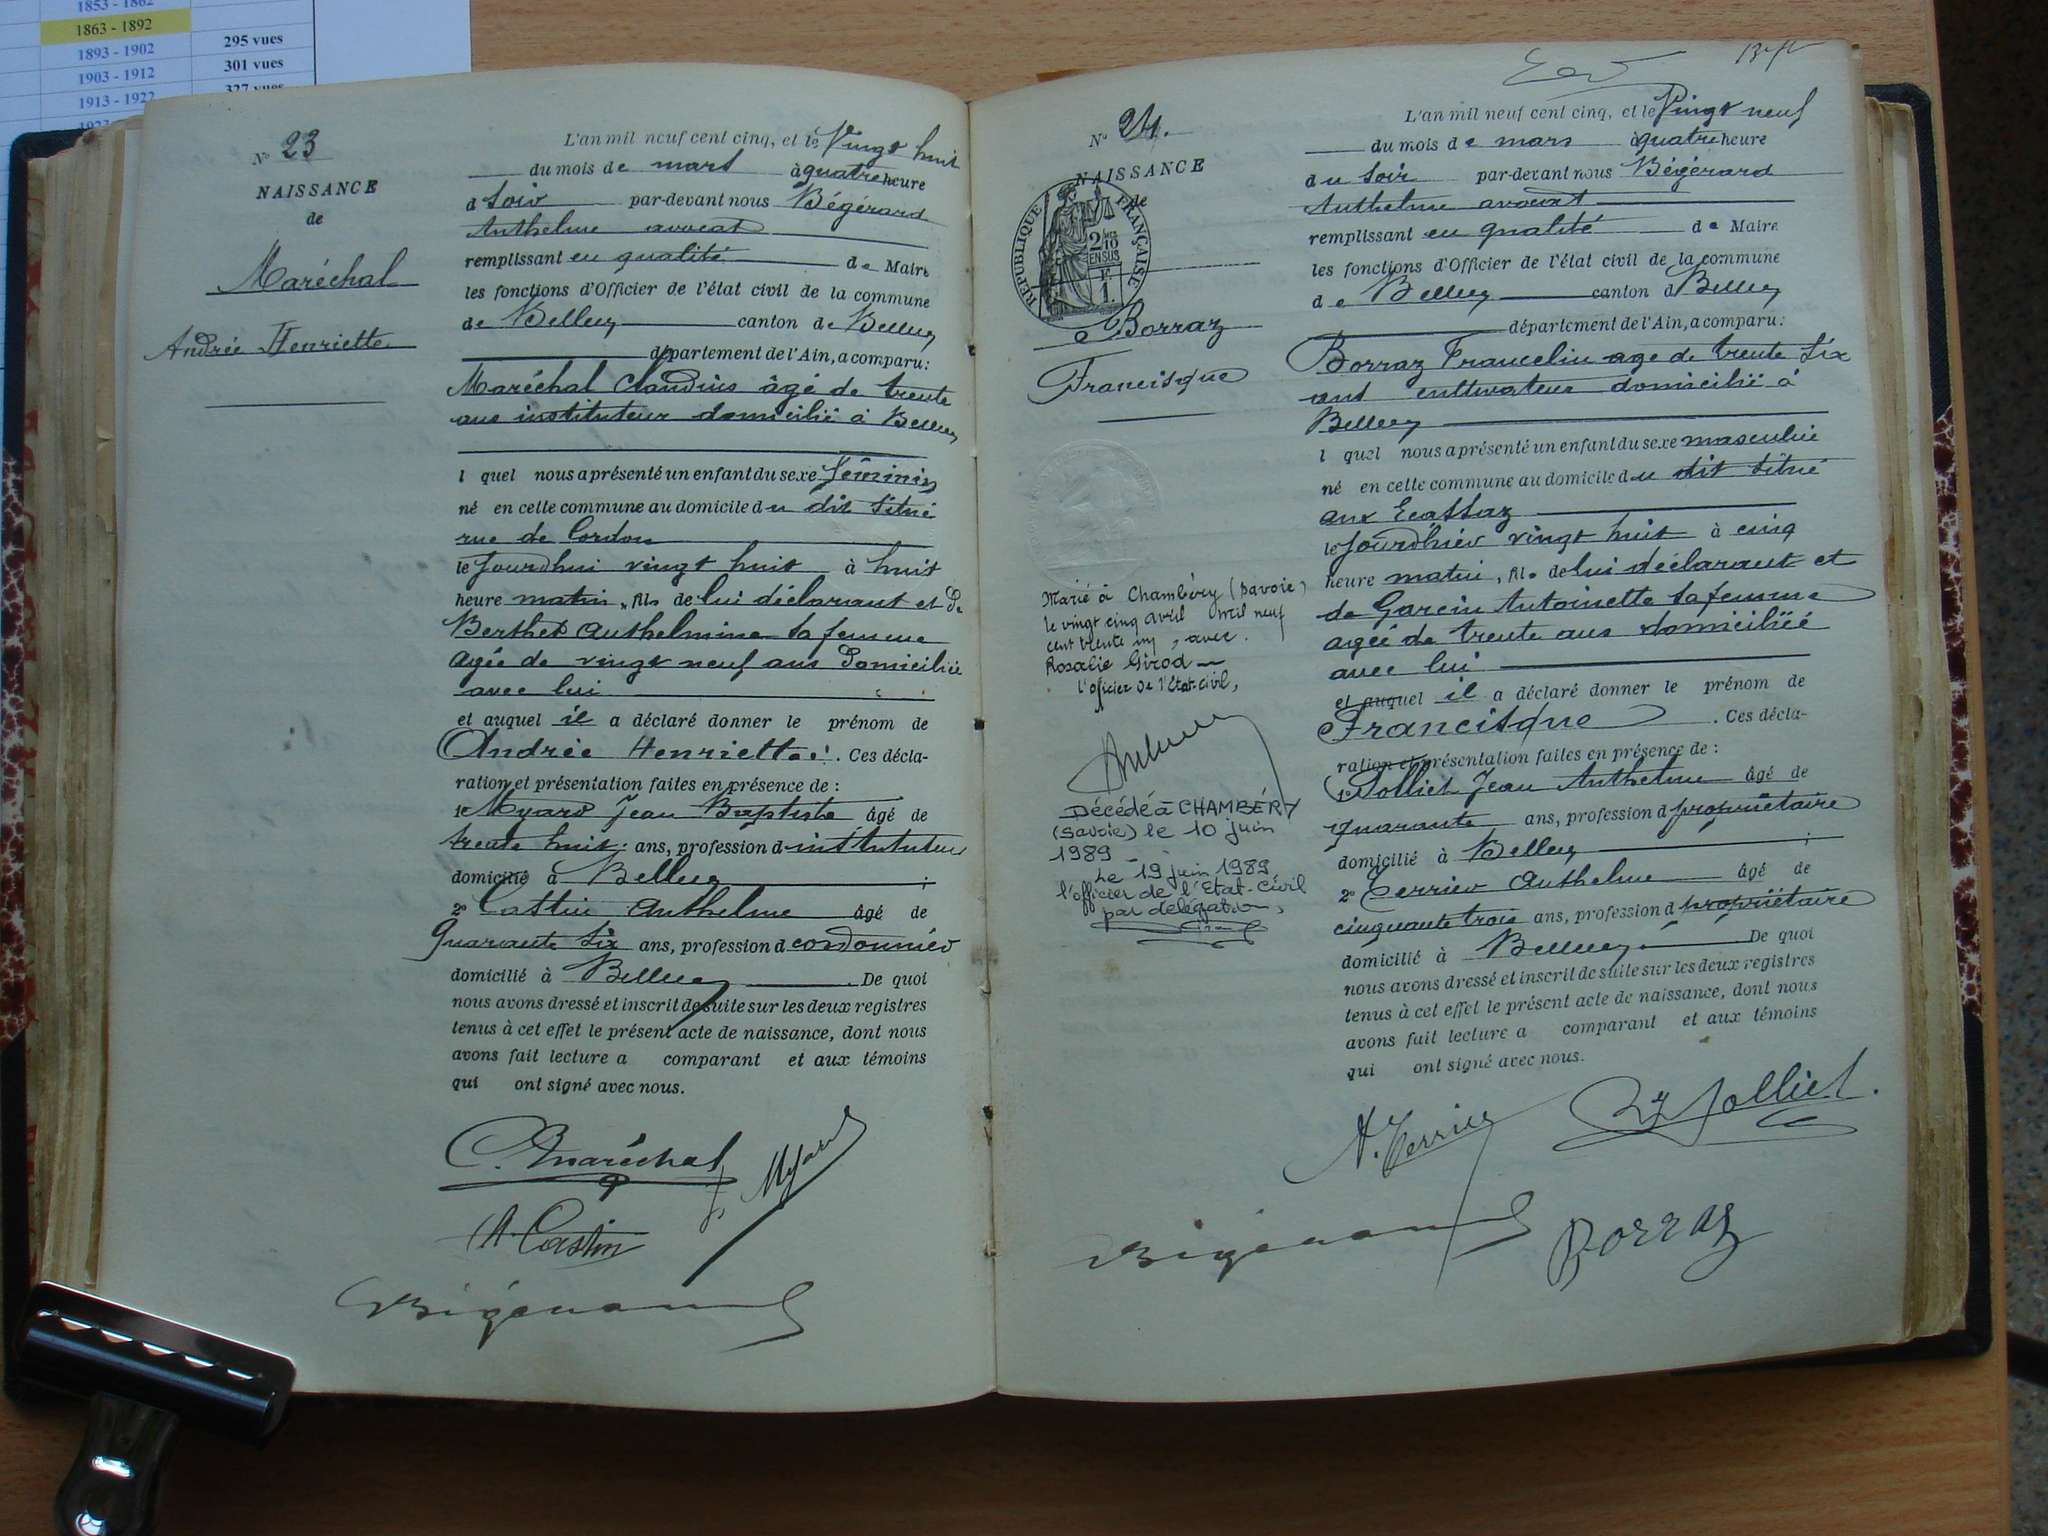 1853 - 1862
1863 - 1892
1893 - 1902 295 vues
1903 - 1912 301 vues
1913 - 1922 327 vues
N° 23
NAISSANCE
de
Maréchal
Andrée Henriette
L'an mil neuf cent cinq, et le Vingt huit
du mois de mars à quatre heure
d soir par-devant nous Bégérard
Anthelme avocat
remplissant en qualité de Maire
les fonctions d'Officier de l'état civil de la commune
de Belley canton de Belley
département de l'Ain, a comparu:
Maréchal Claudius âgé de trente
ans instituteur domicilié à Belley
l quel nous a présenté un enfant du sexe féminin
né en cette commune au domicile du dit situé
rue de Cordon
le jourdhui vingt huit à huit
heure matin, fils de lui déclarant et de
Berthet Anthelmine sa femme
agée de vingt neuf ans domiciliée
avec lui
et auquel il a déclaré donner le prénom de
Andrée Henriette. Ces décla-
ration et présentation faites en présence de :
1° Myard Jean Baptiste âgé de
trente huit ans, profession d instituteur
domicilié à Belley ;
2° Castin Anthelme âgé de
quarante six ans, profession d cordonnier
domicilié à Belley. De quoi
nous avons dressé et inscrit de suite sur les deux registres
tenus à cet effet le présent acte de naissance, dont nous
avons fait lecture a comparant et aux témoins
qui ont signé avec nous.
C. Maréchal
J. Myard
A. Castin
Bégérard
N° 24.
NAISSANCE
de
RÉPUBLIQUE FRANÇAISE
Borraz
Francisque
Marié à Chambéry (Savoie)
le vingt cinq avril mil neuf
cent trente un, avec
Rosalie Girod
l'officier de l'Etat-civil,
Décédé à CHAMBÉRY
(Savoie) le 10 juin
1989
Le 19 juin 1989
l'officier de l'Etat-Civil
par délégation,
L'an mil neuf cent cinq, et le Vingt neuf
du mois de mars à quatre heure
du soir par-devant nous Bégérard
Anthelme avocat
remplissant en qualité de Maire
les fonctions d'Officier de l'état civil de la commune
de Belley canton d Belley
département de l'Ain, a comparu :
Borraz Francelin age de trente six
ans cultivateur domicilié à
Belley
l quel nous a présenté un enfant du sexe masculin
né en cette commune au domicile du dit situé
aux Ecassaz
le jourdhier vingt huit à cinq
heure matin, fils de lui déclarant et
de Garcin Antoinette sa femme
agée de trente ans domiciliée
avec lui
et auquel il a déclaré donner le prénom de
Francisque. Ces décla-
ration et présentation faites en présence de :
1° Jolliet Jean Anthelme âgé de
quarante ans, profession d propriétaire
domicilié à Belley ;
2° Terrier Anthelme âgé de
cinquante trois ans, profession d propriétaire
domicilié à Belley. De quoi
nous avons dressé et inscrit de suite sur les deux registres
tenus à cet effet le présent acte de naissance, dont nous
avons fait lecture a comparant et aux témoins
qui ont signé avec nous.
A. Terrier
Jolliet.
Bégérard
Borraz